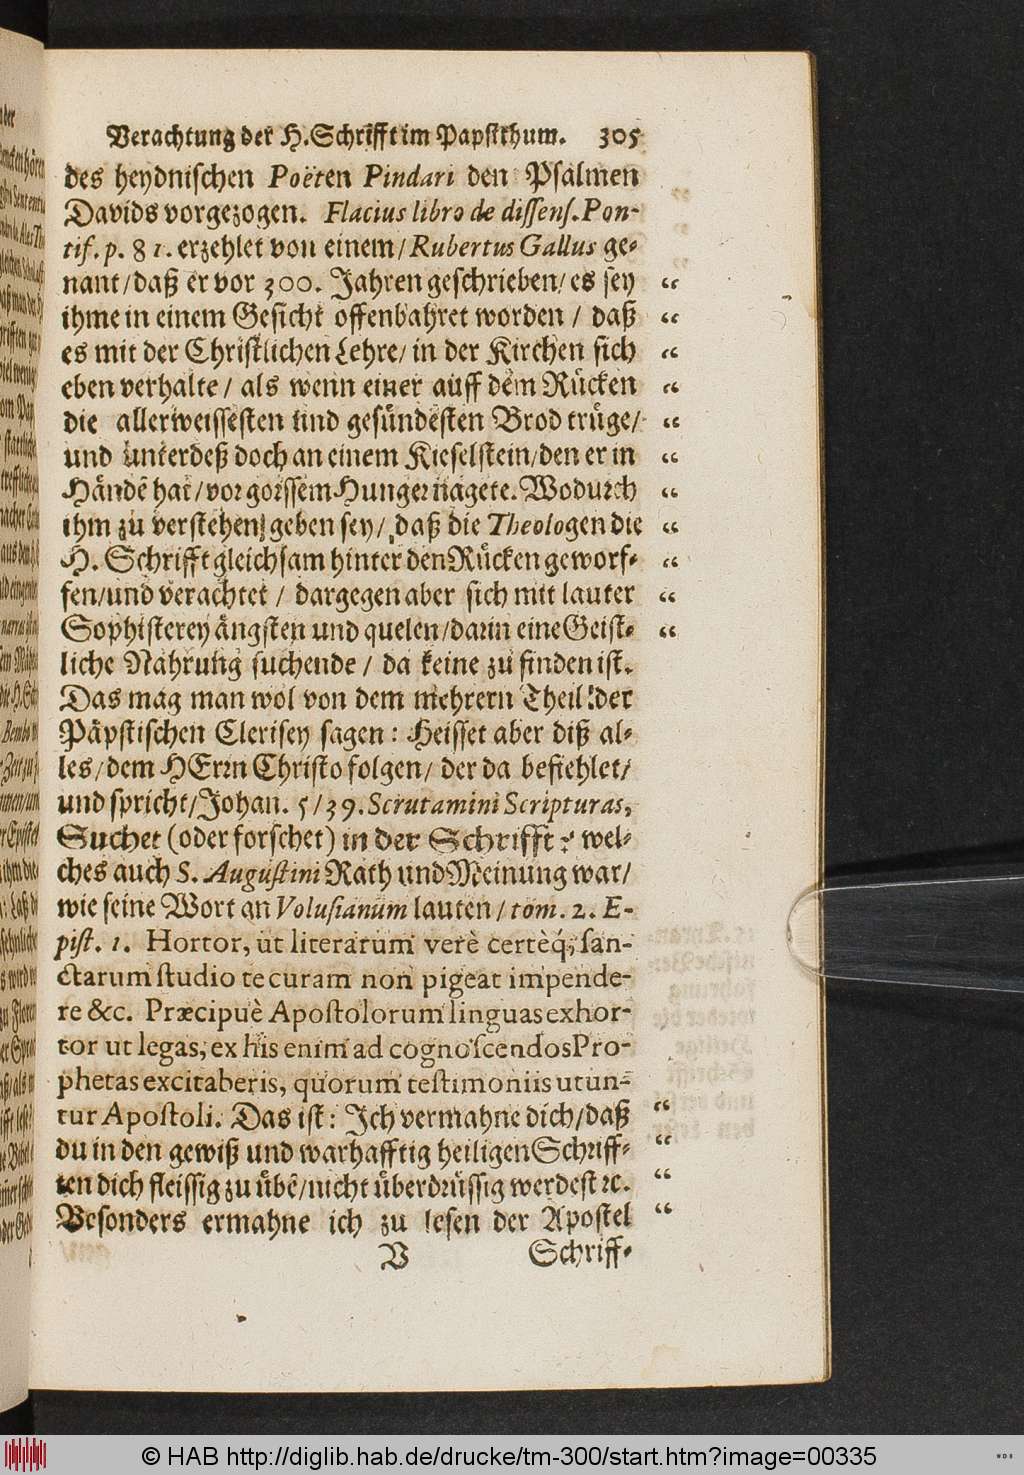 Verachtung der H. Schrifft im Papstthum. 305
des heydnischen Poëten Pindari den Psalmen
Davids vorgezogen. Flacius libro de dissens. Pon-
tif. p. 81. erzehlet von einem/ Rubertus Gallus ge-
nant/ daß er vor 300. Jahren geschrieben/ es sey “
ihme in einem Gesicht offenbahret worden / daß “
es mit der Christlichen Lehre/ in der Kirchen sich “
eben verhalte / als wenn einer auff dem Rücken “
die allerweissesten und gesündesten Brod trüge/ “
und unterdeß doch an einem Kieselstein/ den er in “
Händē hat/ vor gorssem Hunger nagete. Wodurch “
ihm zu verstehen geben sey/ daß die Theologen die “
H. Schrifft gleichsam hinter den Rücken geworf- “
fen/ und verachtet / dargegen aber sich mit lauter “
Sophisterey ängsten und quelen/ darin eine Geist- “
liche Nahrung suchende / da keine zu finden ist.
Das mag man wol von dem mehrern Theil der
Päpstischen Clerisey sagen : Heisset aber diß al-
les/ dem HErrn Christo folgen/ der da befiehlet/
und spricht/ Johan. 5/39. Scrutamini Scripturas,
Suchet (oder forschet) in der Schrifft : wel-
ches auch S. Augustini Rath und Meinung war/
wie seine Wort an Volusianum lauten / tom. 2. E-
pist. 1. Hortor, ut literarum verè certèq́; san-
ctarum studio te curam non pigeat impende-
re &c. Præcipuè Apostolorum linguas exhor-
tor ut legas, ex his enim ad cognoscendos Pro-
phetas excitaberis, quorum testimoniis utun-
tur Apostoli. Das ist : Ich vermahne dich/ daß “
du in den gewiß und warhafftig heiligen Schriff- “
ten dich fleissig zu übē/ nicht überdrüssig werdest ꝛc. “
Besonders ermahne ich zu lesen der Apostel “
V Schriff-
© HAB http://diglib.hab.de/drucke/tm-300/start.htm?image=00335